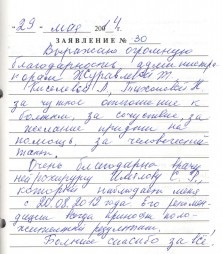 «29» мая 2014.
ЗАЯВЛЕНИЕ № 30
Выражаю огромную
благодарность админстр
Киселевой А, Тихоновой Н
за чуткое отношение к
больным, за сочувствие, за
желание прийти на
помощь, за человеческий
такт.
Очень благодарна врачу
нейрохирургу
который наблюдает меня
с 20.08.2013 года. Его
всегда приносят поло-
жительный результат.
Большое спасибо за всё!